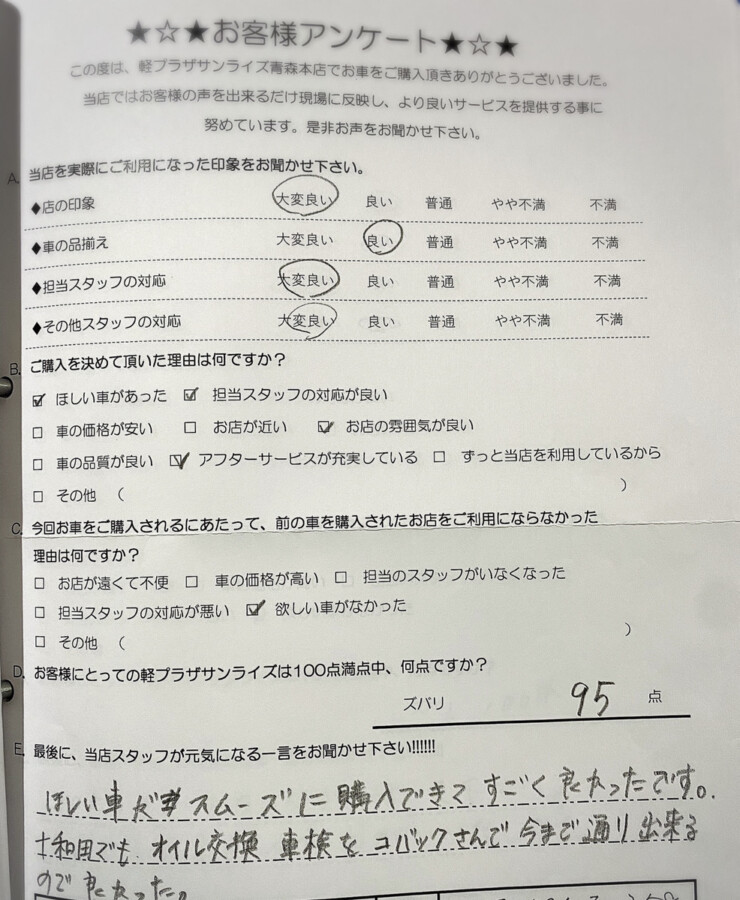 ★☆★お客様アンケート★☆★
この度は、軽プラザサンライズ青森本店でお車をご購入頂きありがとうございました。
当店ではお客様の声を出来るだけ現場に反映し、より良いサービスを提供する事に
努めています。是非お声をお聞かせ下さい。
A. 当店を実際にご利用になった印象をお聞かせ下さい。
◆店の印象 大変良い 良い 普通 やや不満 不満
◆車の品揃え 大変良い 良い 普通 やや不満 不満
◆担当スタッフの対応 大変良い 良い 普通 やや不満 不満
◆その他スタッフの対応 大変良い 良い 普通 やや不満 不満
B. ご購入を決めて頂いた理由は何ですか？
☑ ほしい車があった ☑ 担当スタッフの対応が良い
□ 車の価格が安い □ お店が近い ☑ お店の雰囲気が良い
□ 車の品質が良い ☑ アフターサービスが充実している □ ずっと当店を利用しているから
□ その他 （ ）
C. 今回お車をご購入されるにあたって、前の車を購入されたお店をご利用にならなかった
理由は何ですか？
□ お店が遠くて不便 □ 車の価格が高い □ 担当のスタッフがいなくなった
□ 担当スタッフの対応が悪い ☑ 欲しい車がなかった
□ その他 （ ）
D. お客様にとっての軽プラザサンライズは100点満点中、何点ですか？
ズバリ 95 点
E. 最後に、当店スタッフが元気になる一言をお聞かせ下さい!!!!!!
ほしい車が スムーズに 購入できて すごく良かったです。
十和田でも、オイル交換 車検を コバックさんで 今まで通り出来る
ので良かった。